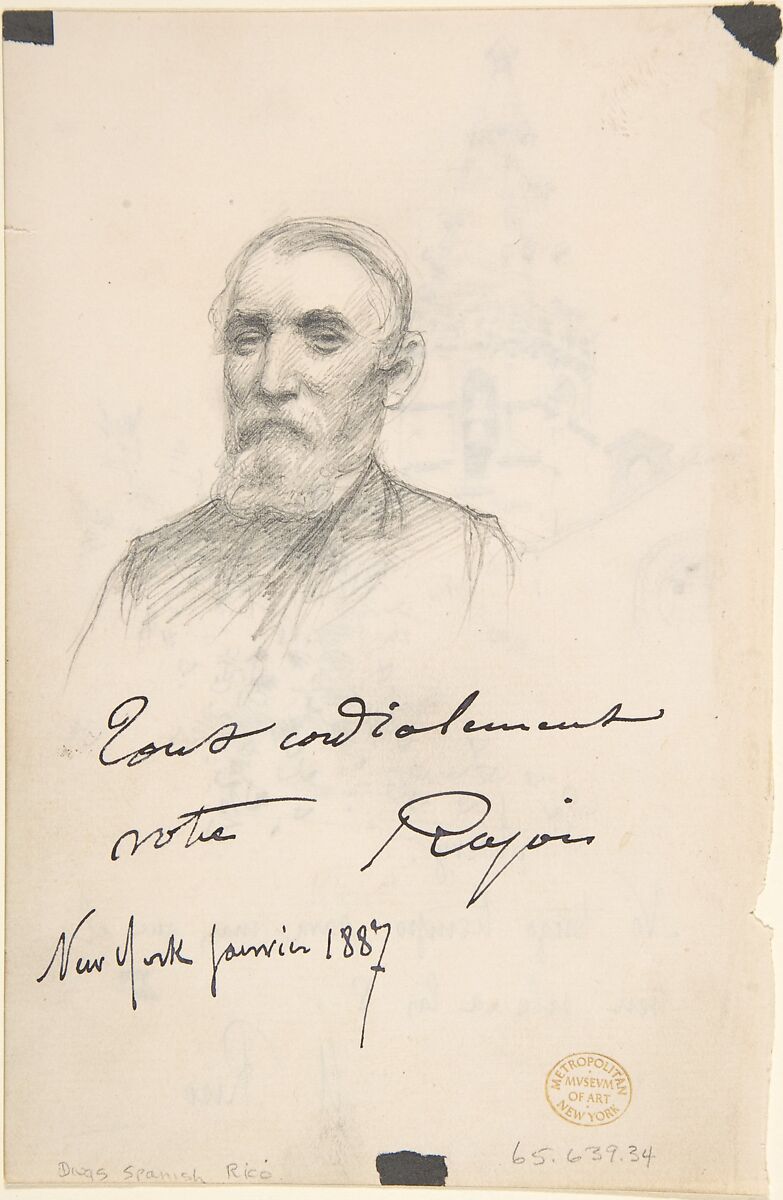 Tout cordialement
votre Rajon
New York janvier 1887
METROPOLITAN
MVSEVM
OF ART
NEW YORK
65.639.34
Dwgs Spanish Rico